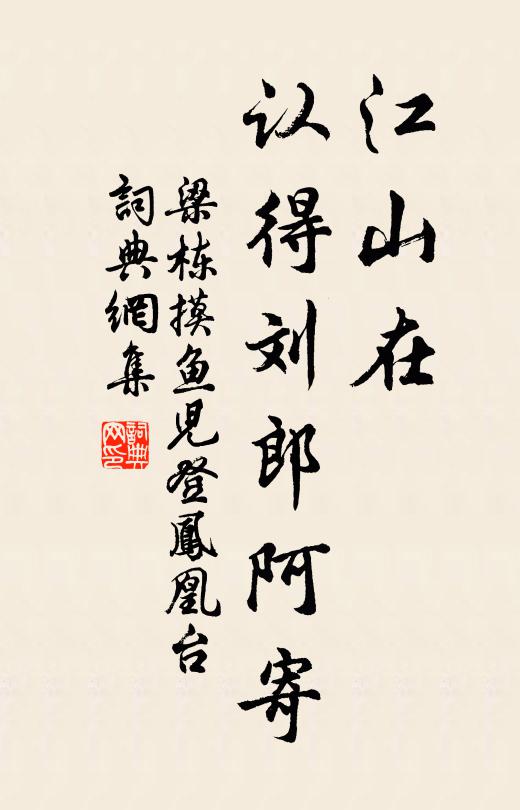 江山在
认得刘郎阿寄
梁栋摸鱼児登鳳凰台
詞典網集
詞典
网印